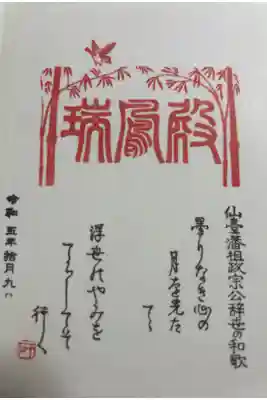 瑞鳳殿
仙臺藩祖政宗公辞世の和歌
曇りなき心の
月を先た
てゝ
浮世のやみを
てらしてそ
行く
令和五年拾月九日